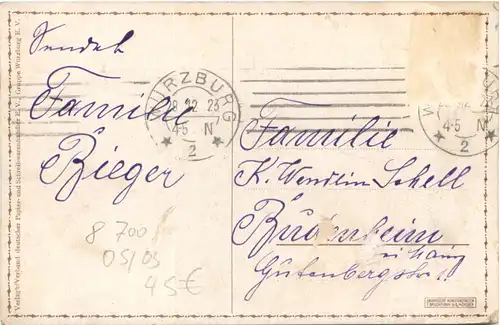 Sendet
Familie
Bieger
WÜRZBURG
22 23
4-5 N
2
Familie
K. Wendlin Schell
Budenheim
Gutenbergstr.
8 700
05/03
45€
4-5 N
2
Verlag: Verband deutscher Papier- und Schreibwarenhändler E.V., Gruppe Würzburg E.V.